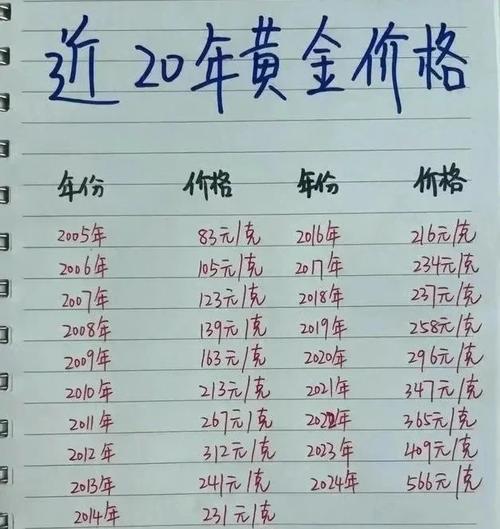 近20年黄金价格
年份 价格 年份 价格
2005年 83元/克 2016年 216元/克
2006年 105元/克 2017年 234元/克
2007年 123元/克 2018年 237元/克
2008年 139元/克 2019年 258元/克
2009年 163元/克 2020年 296元/克
2010年 213元/克 2021年 347元/克
2011年 267元/克 2022年 365元/克
2012年 312元/克 2023年 409元/克
2013年 241元/克 2024年 566元/克
2014年 231元/克